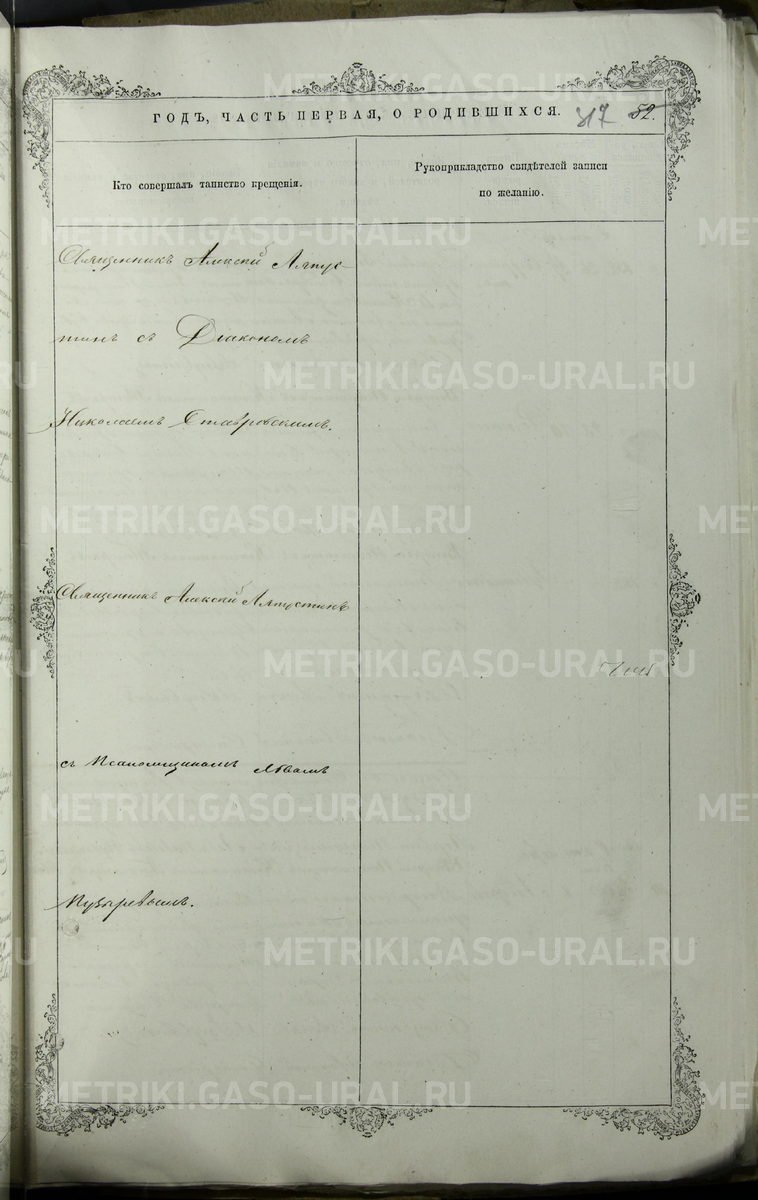 ГОДЪ, ЧАСТЬ ПЕРВАЯ, О РОДИВШИХСЯ. 317 52.
Кто совершалъ таинство крещенія.
Рукоприкладство свидѣтелей записи
по желанію.
Священникъ Алексій Ляпус-
тинъ съ Діакономъ
Николаемъ Ставровскимъ.
Священникъ Алексій Ляпустинъ
съ Псаломщикомъ
Пузыревымъ.
METRIKI.GASO-URAL.RU